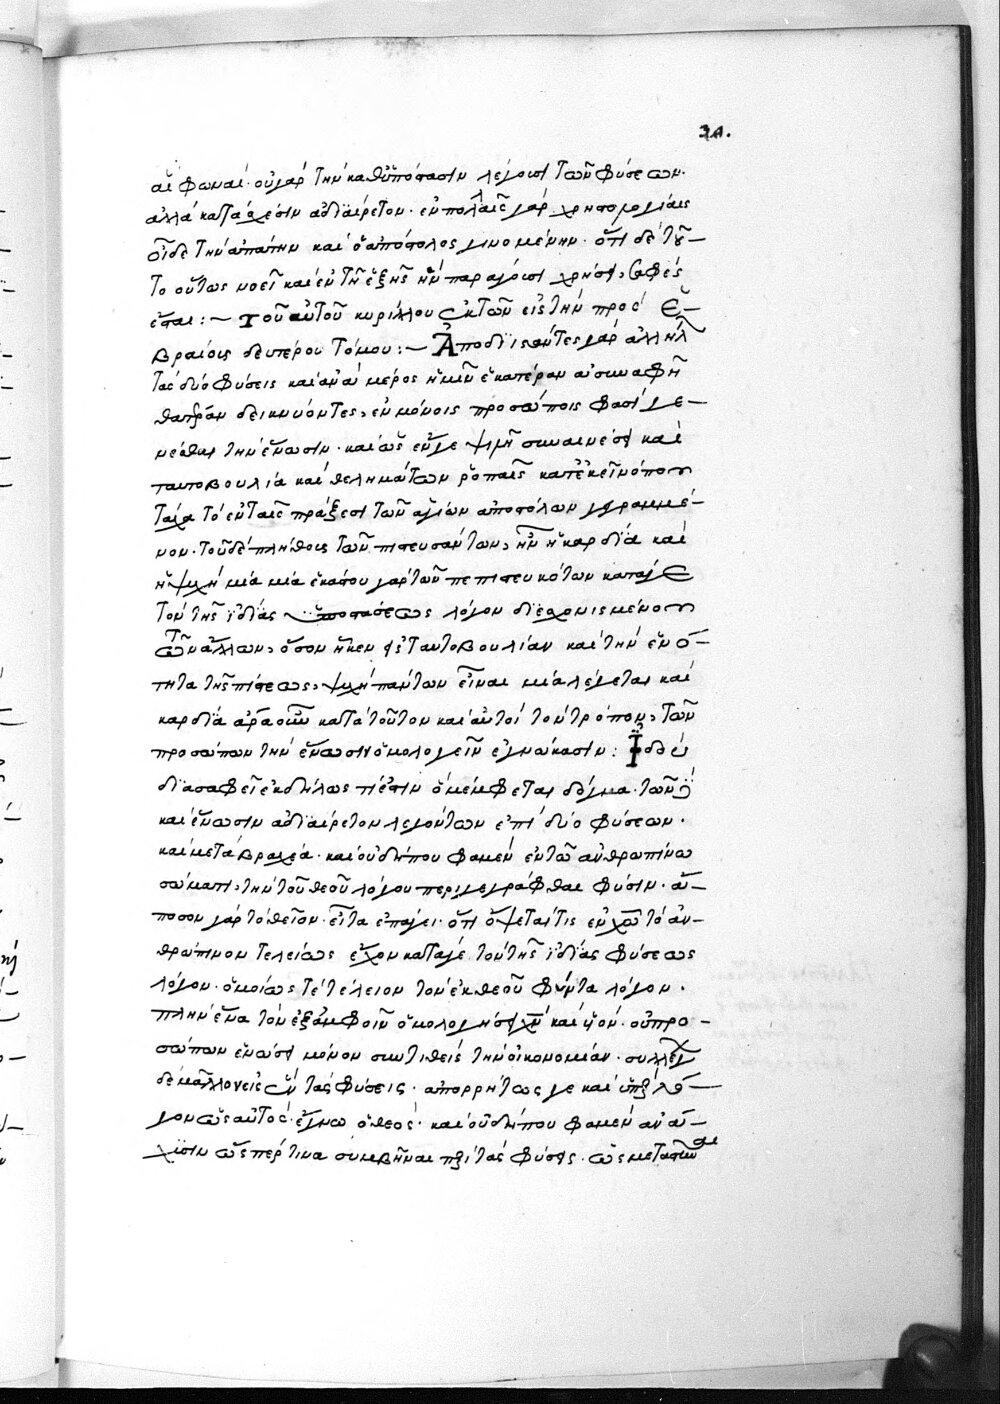 34.
αἱ φωναί· οὐ γὰρ τὴν καθ' ὑπόστασιν λέγουσι τῶν φύσεων·
ἀλλὰ κατὰ σχέσιν ἀδιαίρετον· ἐν πολλαῖς γὰρ χρηστολογίαις
οἶδε τὴν ἀπάτην καὶ ὁ ἀπόστολος γινομένην· ὅτι δὲ τοῦ-
το οὕτως νοεῖ καὶ ἐν τῇ ἑξῆς ἣν παράγουσι χρήσει, σαφὲς
ἔσται :~ τοῦ αὐτοῦ κυρίλλου ἐκ τῶν εἰς τὴν πρὸς ἑ-
βραίους δευτέρου τόμου :~ Ἀποδιιστάντες γὰρ ἀλλήλων
τὰς δύο φύσεις καὶ ἀνὰ μέρος ἡμῖν ἑκατέραν ἀσυναφῆ
θατέραν δεικνύοντες, ἐν μόνοις προσώποις φασὶ γε-
νέσθαι τὴν ἕνωσιν· καὶ ὡς ἔν γε ψιλῇ συναινέσει καὶ
ταυτοβουλία καὶ θελημάτων ῥοπαῖς κατ' ἐκεῖνό που
τάχα τὸ ἐν ταῖς πράξεσι τῶν ἁγίων ἀποστόλων γεγραμμέ-
νον· τοῦ δὲ πλήθους τῶν πιστευσάντων, ἦν ἡ καρδία καὶ
ἡ ψυχὴ μία μία ἑκάστου γὰρ τῶν πεπιστευκότων κατά γε
τὸν τῆς ἰδίας ὑποστάσεως λόγον διεσχοινισμένου
τῶν ἄλλων, ὅσον ἧκεν εἰς ταυτοβουλίαν καὶ τὴν ἑνό-
τητα τῆς πίστεως, ψυχὴ πάντων εἶναι μία λέγεται καὶ
καρδία ἆρα οὖν κατὰ τοῦτον καὶ αὐτοὶ τὸν τρόπον, τῶν
προσώπων τὴν ἕνωσιν ὁμολογεῖν ἐγνώκασιν : Ἰδοὺ
διασαφεῖ ἐκδήλως ποίων μέμφεται δόγμα· τῶν
καὶ ἕνωσιν ἀδιαίρετον λεγόντων ἐπὶ δύο φύσεων·
καὶ μετὰ βραχέα· καὶ οὐ δήπου φαμὲν ἐν τῷ ἀνθρωπίνῳ
σώματι, τὴν τοῦ θεοῦ λόγου περιγεγράφθαι φύσιν· ἄ-
ποσον γὰρ τὸ θεῖον· εἶτα ἐπάγει· ὅτι ὄψεταί τις ἐν χῷ τὸ ἀν-
θρώπινον τελείως ἔχον κατά γε τὸν τῆς ἰδίας φύσεως
λόγον· ὁμοίως τε τέλειον τὸν ἐκ θεοῦ φύντα λόγον·
πλὴν ἕνα τὸν ἐξ ἀμφοῖν ὁμολογήσει χν καὶ υν· οὐ προ-
σώπων ἑνώσει μόνον συντιθεὶς τὴν οἰκονομίαν· συλλέγων
δὲ μᾶλλον εἰς ἓν τὰς φύσεις· ἀπορρήτως γε καὶ ὑπὲρ λό-
γον ὡς αὐτὸς ἔγνω ὁ θεός· καὶ οὐ δήπου φαμὲν ἀνά-
χυσιν ὥσπερ τινα συμβῆναι περὶ τὰς φύσεις· ὡς μεταστῆναι